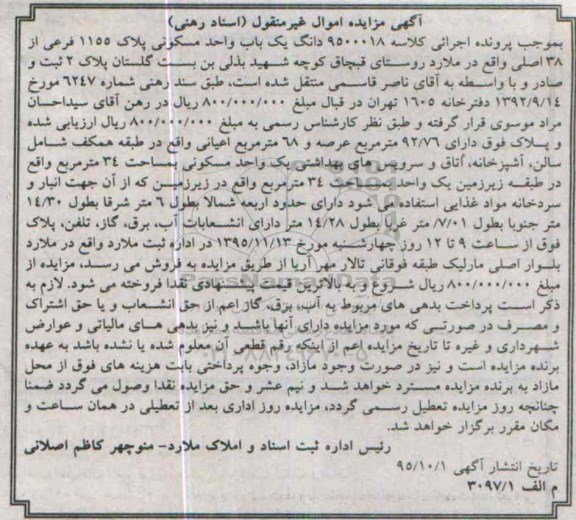 آگهی مزایده اموال غیرمنقول (اسناد رهنی)
بموجب پرونده اجرائی کلاسه ۹۵۰۰۰۱۸ دانگ یک باب واحد مسکونی پلاک ۱۱۵۵ فرعی از
۳۸ اصلی واقع در ملارد روستای قبچاق کوچه شهید بذلی بن بست گلستان پلاک ۲ ثبت و
صادر و با واسطه به آقای ناصر قاسمی منتقل شده است، طبق سند رهنی شماره ۶۲۴۷ مورخ
۱۳۹۲/۹/۱۴ دفترخانه ۱۶۰۵ تهران در قبال مبلغ ۸۰۰/۰۰۰/۰۰۰ ریال در رهن آقای سیداحسان
مراد موسوی قرار گرفته و طبق نظر کارشناس رسمی به مبلغ ۸۰۰/۰۰۰/۰۰۰ ریال ارزیابی شده
و پلاک فوق دارای ۹۲/۷۶ مترمربع عرصه و ۶۸ مترمربع اعیانی واقع در طبقه همکف شامل
سالن، آشپزخانه، اتاق و سرویس های بهداشتی یک واحد مسکونی بمساحت ۳۴ مترمربع واقع
در طبقه زیرزمین یک واحد بمساحت ۳۴ مترمربع واقع در زیرزمین که از آن جهت انبار و
سردخانه مواد غذایی استفاده می شود دارای حدود اربعه شمالا بطول ۶ متر شرقا بطول ۱۴/۳۰
متر جنوبا بطول ۷/۰۱ متر غربا بطول ۱۴/۲۸ متر دارای انشعابات آب، برق، گاز، تلفن، پلاک
فوق از ساعت ۹ تا ۱۲ روز چهارشنبه مورخ ۱۳۹۵/۱۱/۱۳ در اداره ثبت ملارد واقع در ملارد
بلوار اصلی مارلیک طبقه فوقانی تالار مهر آریا از طریق مزایده به فروش می رسد، مزایده از
مبلغ ۸۰۰/۰۰۰/۰۰۰ ریال شروع و به بالاترین قیمت پیشنهادی نقدا فروخته می شود. لازم به
ذکر است پرداخت بدهی های مربوط به آب، برق، گاز اعم از حق انشعاب و یا حق اشتراک
و مصرف در صورتی که مورد مزایده دارای آنها باشد و نیز بدهی های مالیاتی و عوارض
شهرداری و غیره تا تاریخ مزایده اعم از اینکه رقم قطعی آن معلوم شده یا نشده باشد به عهده
برنده مزایده است و نیز در صورت وجود مازاد، وجوه پرداختی بابت هزینه های فوق از محل
مازاد به برنده مزایده مسترد خواهد شد و نیم عشر و حق مزایده نقدا وصول می گردد ضمنا
چنانچه روز مزایده تعطیل رسمی گردد، مزایده روز اداری بعد از تعطیلی در همان ساعت و
مکان مقرر برگزار خواهد شد.
رئیس اداره ثبت اسناد و املاک ملارد- منوچهر کاظم اصلانی
تاریخ انتشار آگهی ۹۵/۱۰/۱
م الف ۳۰۹۷/۱